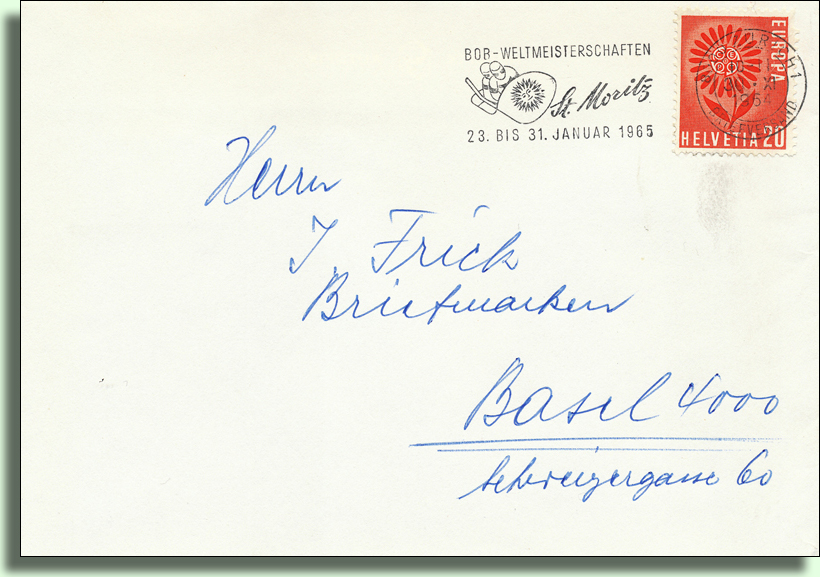 BOB-WELTMEISTERSCHAFTEN
St. Moritz
23. BIS 31. JANUAR 1965
EUROPA
HELVETIA 20
Herrn
J. Frick
Briefmarken
Basel 4000
Schweizergasse 60